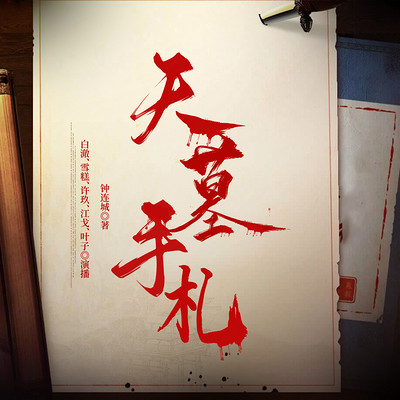 天墓手札
钟连城◎著
白澉、雪糕、许玖、江戈、叶子◎演播